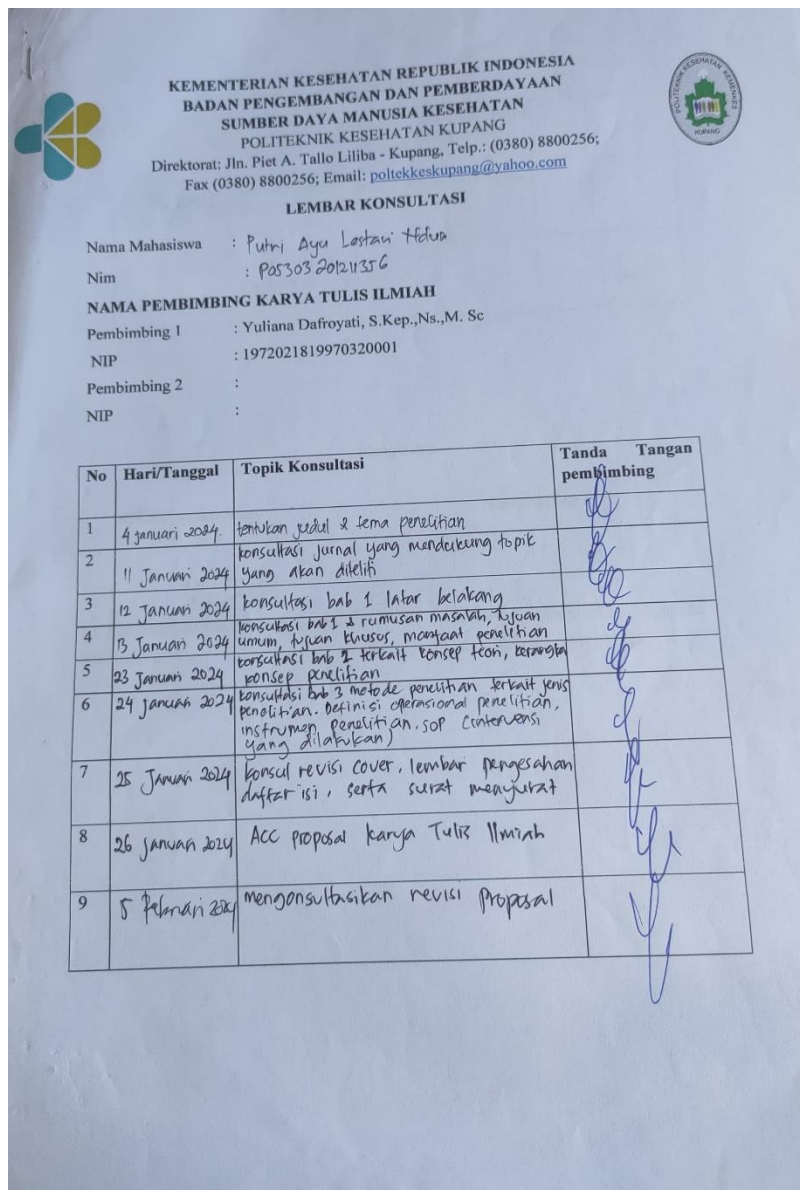 KEMENTERIAN KESEHATAN REPUBLIK INDONESIA
BADAN PENGEMBANGAN DAN PEMBERDAYAAN
SUMBER DAYA MANUSIA KESEHATAN
POLITEKNIK KESEHATAN KUPANG
Direktorat: Jln. Piet A. Tallo Liliba - Kupang, Telp.: (0380) 8800256;
Fax (0380) 8800256; Email: poltekkeskupang@yahoo.com
POLITEKNIK KESEHATAN KEMENKES
KUPANG
LEMBAR KONSULTASI
Nama Mahasiswa : Putri Ayu Lestari
Nim : PO530320121 1356
NAMA PEMBIMBING KARYA TULIS ILMIAH
Pembimbing 1 : Yuliana Dafroyati, S.Kep.,Ns.,M. Sc
NIP : 1972021819970320001
Pembimbing 2 :
NIP :
No Hari/Tanggal Topik Konsultasi Tanda Tangan
pembimbing
1 4 januari 2024. tentukan judul & tema penelitian
2 11 Januari 2024 konsultasi jurnal yang mendukung topik
yang akan diteliti
3 12 Januari 2024 konsultasi bab 1 latar belakang
4 13 Januari 2024 konsultasi bab 1 & rumusan masalah, tujuan
umum, tujuan khusus, manfaat penelitian
5 23 Januari 2024 konsultasi bab 2 terkait konsep teori, kerangka
konsep penelitian
6 24 januari 2024 konsultasi bab 3 metode penelitian terkait jenis
penelitian. Definisi operasional penelitian,
instrumen penelitian. SOP (intervensi
yang dilakukan)
7 25 Januari 2024 konsul revisi cover, lembar pengesahan
daftar isi, serta surat menyurat
8 26 januari 2024 ACC proposal karya Tulis Ilmiah
9 5 Februari 2024 mengonsultasikan revisi proposal